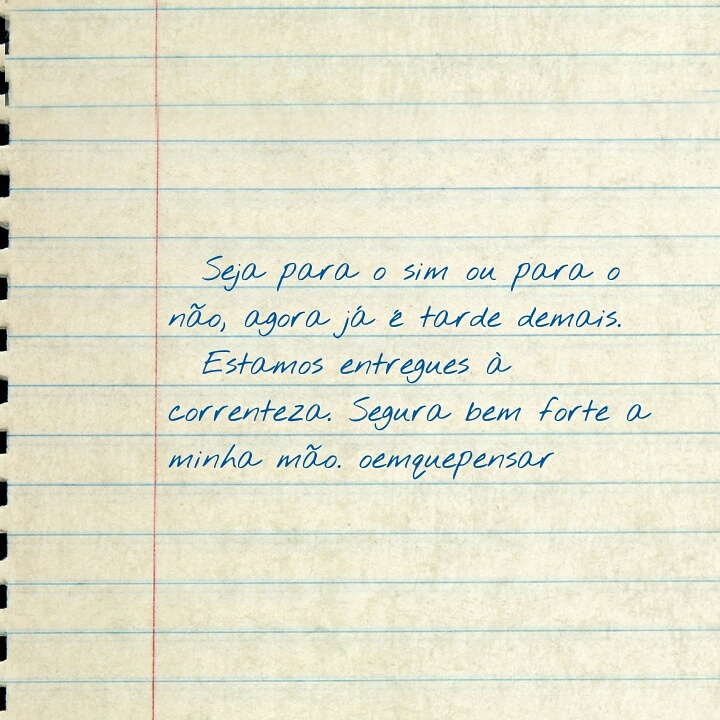 Seja para o sim ou para o
não, agora já é tarde demais.
Estamos entregues à
correnteza. Segura bem forte a
minha mão. oemquepensar